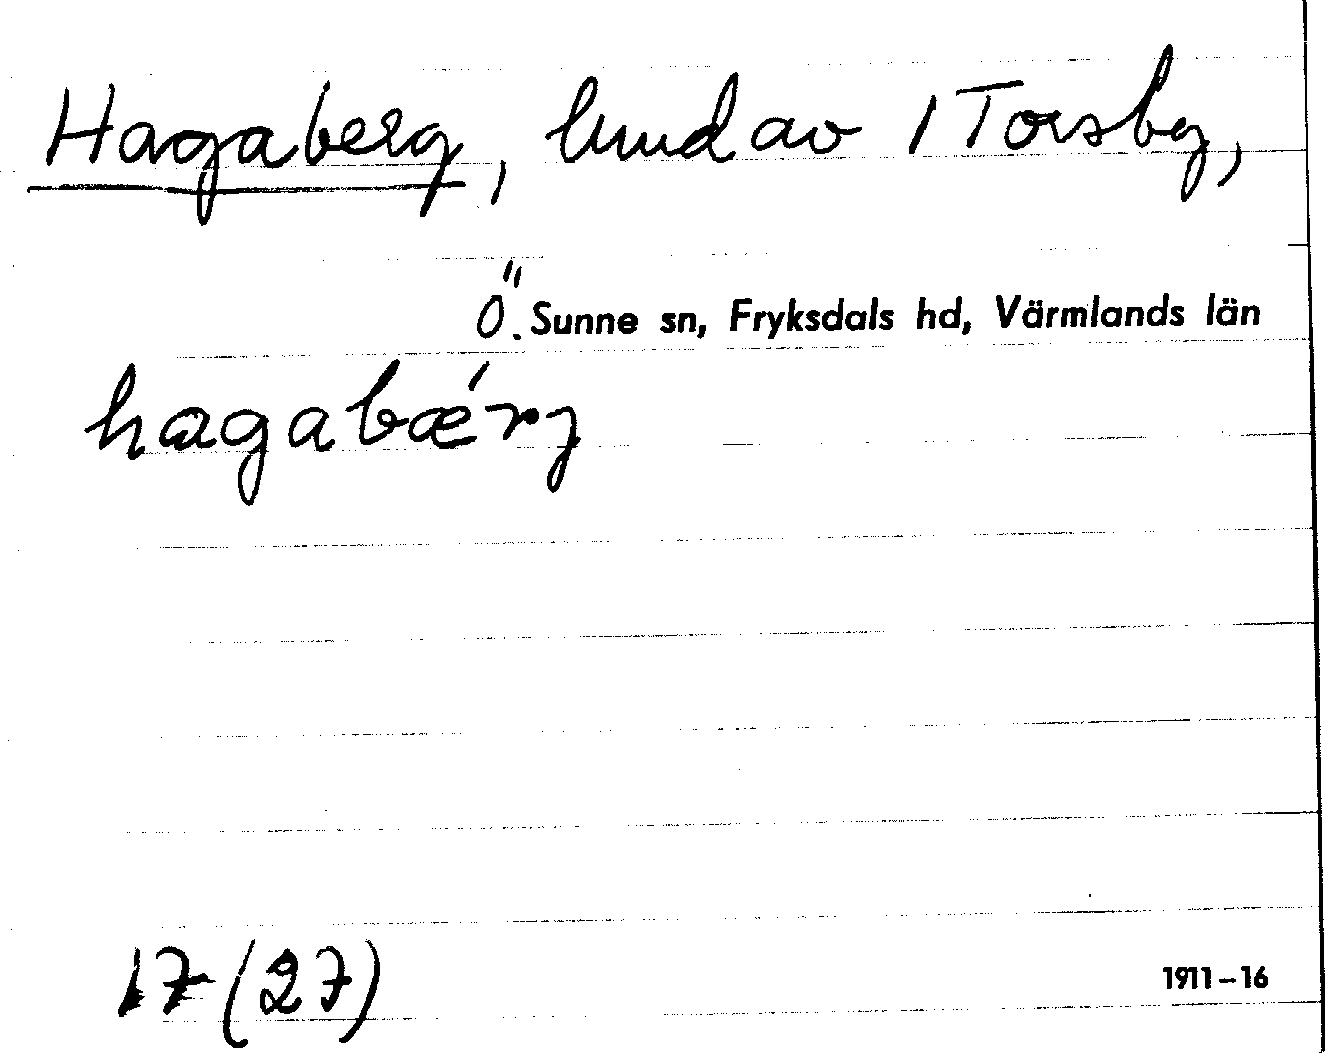 Hagaberg, lund av 1 Torsby,
Ö. Sunne sn, Fryksdals hd, Värmlands län
hagabǽrj
17 (27)
1911-16